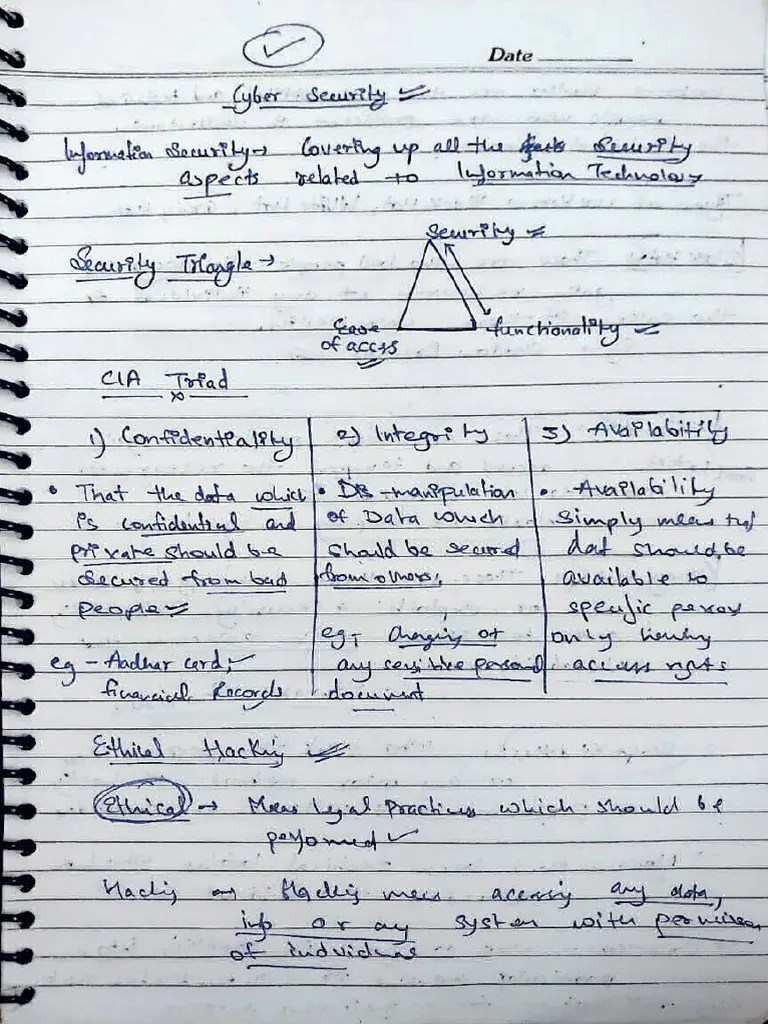 Date
Cyber Security
Information Security → Covering up all the Security
aspects related to Information Technology
Security Triangle →
Security
Ease
of access
functionality
CIA Triad
1) Confidentiality
• That the data which
is confidential and
private should be
secured from bad
people
eg - Aadhar card,
financial Records
2) Integrity
• Dis-manipulation
of Data which
should be secured
from others,
eg, changing of
any sensitive personal
document
3) Availability
• Availability
simply means that
dat should be
available to
specific person
only having
access rights
Ethical Hacking
Ethical → Means legal Practices which should be
performed
Hacking → Hacking means accessing any data,
info or any system with permission
of individual